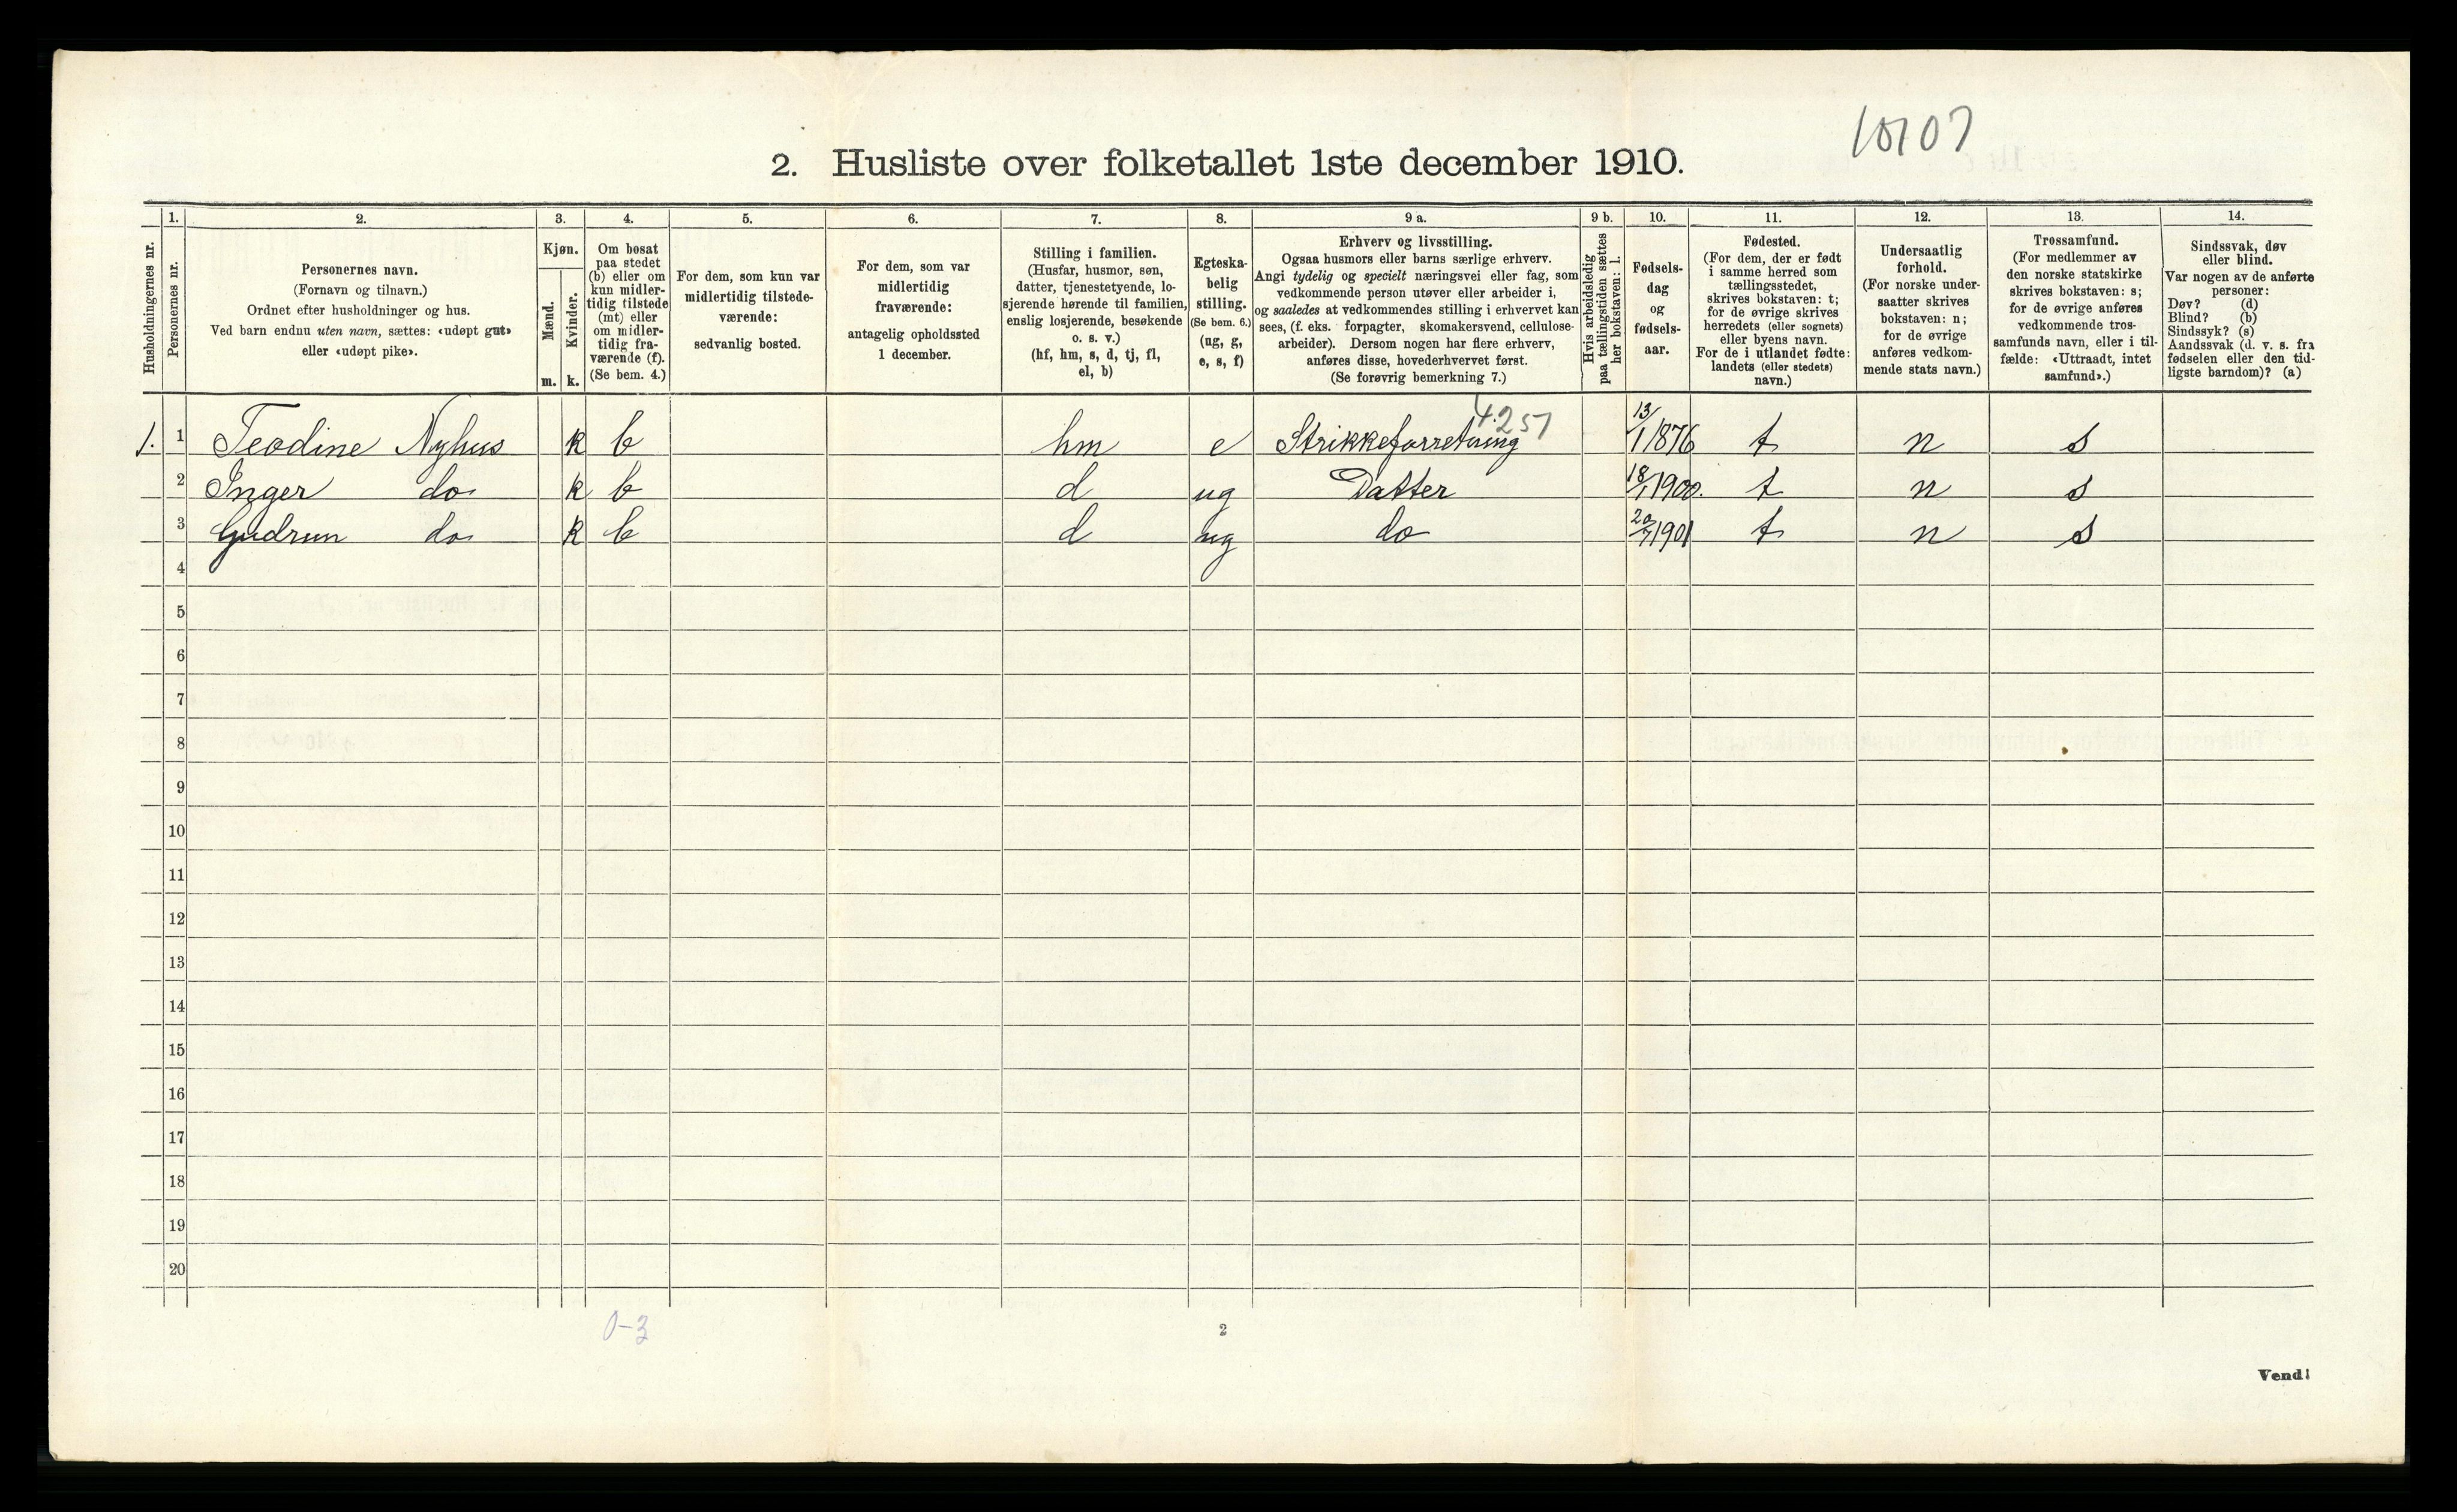 10107
2. Husliste over folketallet 1ste december 1910.
Husholdningernes nr.
1. Personernes nr.
2. Personernes navn. (Fornavn og tilnavn.) Ordnet efter husholdninger og hus. Ved barn endnu uten navn, sættes: «udøpt gut» eller «udøpt pike».
3. Kjøn. Mænd. m. Kvinder. k.
4. Om bosat paa stedet (b) eller om kun midlertidig tilstede (mt) eller om midlertidig fraværende (f). (Se bem. 4.)
5. For dem, som kun var midlertidig tilstedeværende: sedvanlig bosted.
6. For dem, som var midlertidig fraværende: antagelig opholdssted 1 december.
7. Stilling i familien. (Husfar, husmor, søn, datter, tjenestetyende, losjerende hørende til familien, enslig losjerende, besøkende o. s. v.) (hf, hm, s, d, tj, fl, el, b)
8. Egteskabelig stilling. (Se bem. 6.) (ug, g, e, s, f)
9 a. Erhverv og livsstilling. Ogsaa husmors eller barns særlige erhverv. Angi tydelig og specielt næringsvei eller fag, som vedkommende person utøver eller arbeider i, og saaledes at vedkommendes stilling i erhvervet kan sees, (f. eks. forpagter, skomakersvend, cellulosearbeider). Dersom nogen har flere erhverv, anføres disse, hovederhvervet først. (Se forøvrig bemerkning 7.)
9 b. Hvis arbeidsledig paa tællingstiden sættes her bokstaven: l.
10. Fødselsdag og fødselsaar.
11. Fødested. (For dem, der er født i samme herred som tællingsstedet, skrives bokstaven: t; for de øvrige skrives herredets (eller sognets) eller byens navn. For de i utlandet fødte: landets (eller stedets) navn.)
12. Undersaatlig forhold. (For norske undersaatter skrives bokstaven: n; for de øvrige anføres vedkommende stats navn.)
13. Trossamfund. (For medlemmer av den norske statskirke skrives bokstaven: s; for de øvrige anføres vedkommende trossamfunds navn, eller i tilfælde: «Uttraadt, intet samfund».)
14. Sindssvak, døv eller blind. Var nogen av de anførte personer: Døv? (d) Blind? (b) Sindssyk? (s) Aandssvak (d. v. s. fra fødselen eller den tidligste barndom)? (a)
4.251
1. 1 Teodine Nyhus k b hm e Strikkeforretning 13/1 1876 t n s
2 Inger do k b d ug Datter 18/1 1900. t n s
3 Gudrun do k b d ug do 20/7 1901 t n s
4
5
6
7
8
9
10
11
12
13
14
15
16
17
18
19
20
0-3
2
Vend!